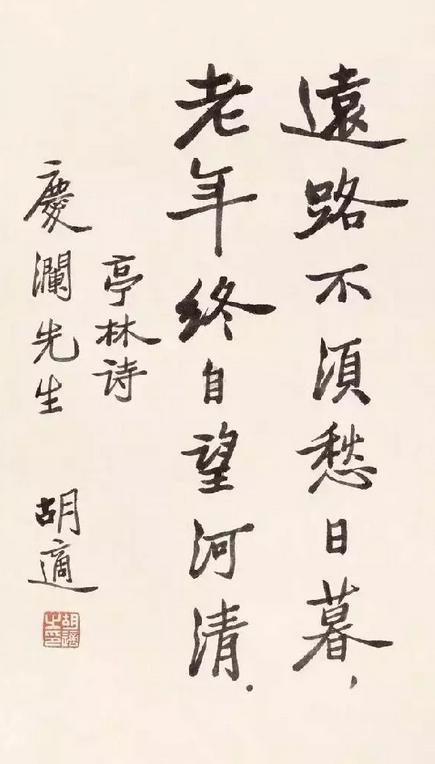 遠路不湏愁日暮，
老年終自望河清．
亭林诗
慶瀾先生 胡適
胡適之印